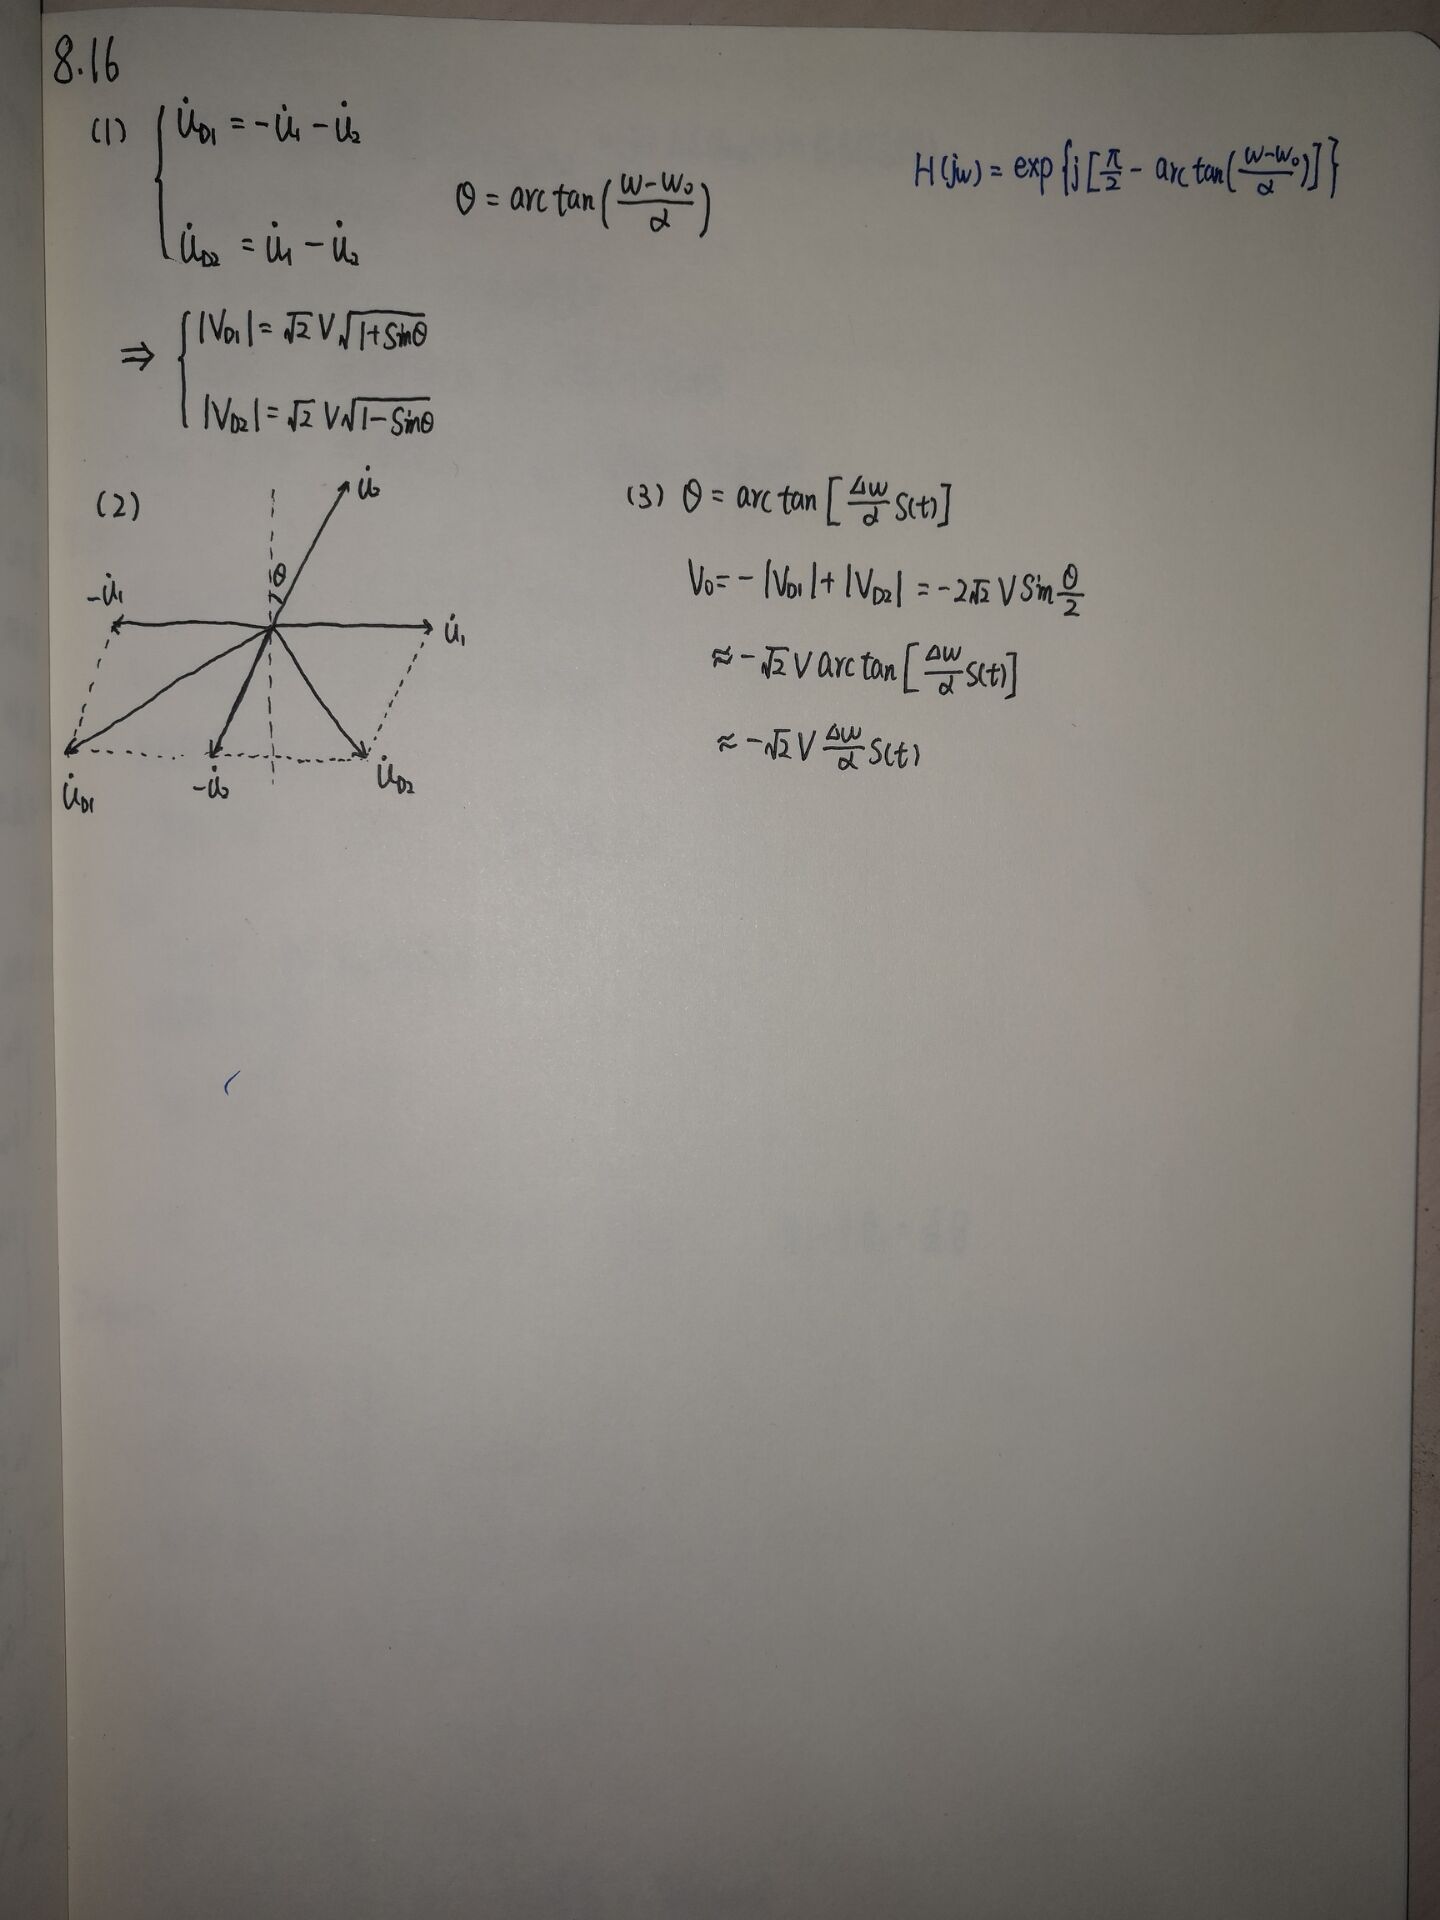 8.16
(1) { u̇D1 = -u̇1 - u̇2
u̇D2 = u̇1 - u̇2
θ = arctan(ω-ω0/α)
H(jω) = exp{j[π/2 - arctan(ω-ω0/α)]}
⇒ { |VD1| = √2 V√(1+Sinθ)
|VD2| = √2 V√(1-Sinθ)
(2)
u̇2
θ
-u̇1
u̇1
u̇D1
-u̇2
u̇D2
(3) θ = arctan[Δω/α S(t)]
V0 = -|VD1| + |VD2| = -2√2 V Sin θ/2
≈ -√2 V arctan[Δω/α S(t)]
≈ -√2 V Δω/α S(t)